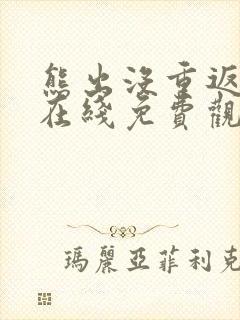 熊出没重返
在綫免費觀
瑪麗亞菲利克